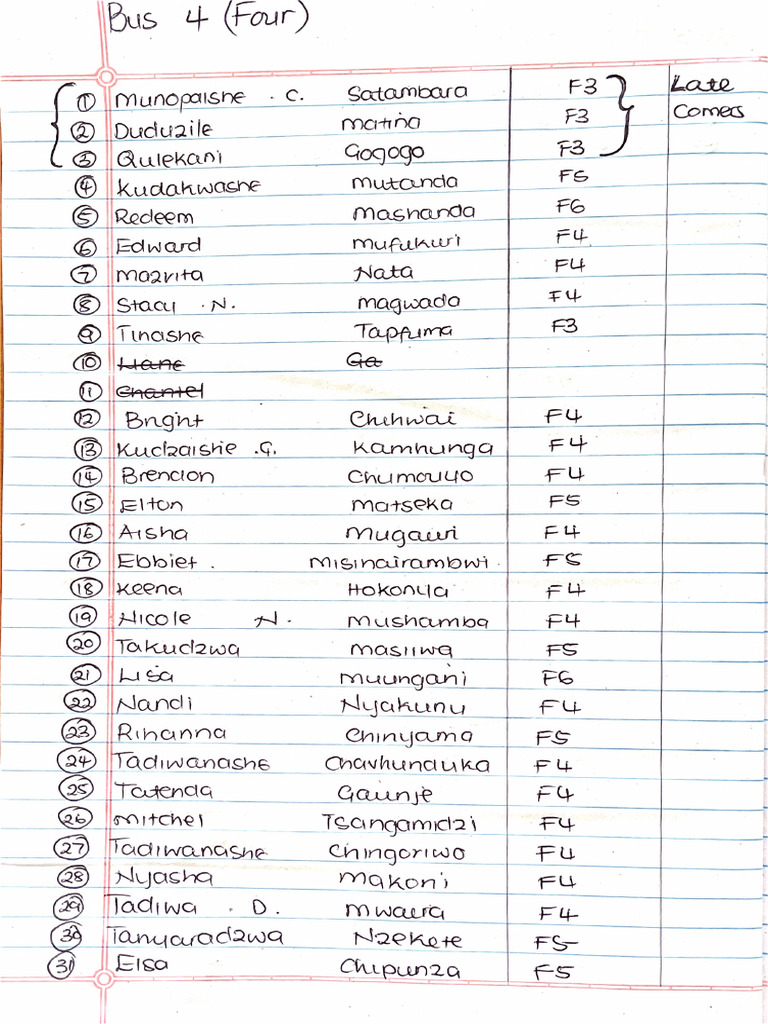 Bus 4 (Four)
1 Munopaishe . C. Satambara F3 Late
2 Duduzile Matina F3 Comers
3 Qulekani Gogogo F3
4 Kudakwashe Mutanda F5
5 Redeem Mashanda F6
6 Edward Mufukwi F4
7 Mazvita Nata F4
8 Stacy . N. Magwado F4
9 Tinashe Tapfuma F3
10 Liane Ga
11 Chantel
12 Bright Chihwai F4
13 Kudzaishe .G. Kamhunga F4
14 Brendon Chumouyo F4
15 Elton Matseka F5
16 Aisha Mugawri F4
17 Ebbiet . Misihairambwi F5
18 Keena Hokonya F4
19 Nicole N. Mushamba F4
20 Takudzwa Masiiwa F5
21 Lisa Muungani F6
22 Nandi Nyakunu F4
23 Rihanna Chinyama F5
24 Tadiwanashe Chavhunduka F4
25 Tatenda Gaunje F4
26 Mitchel Tsangamidzi F4
27 Tadiwanashe Chingoriwo F4
28 Nyasha Makoni F4
29 Tadiwa . D. Mwaera F4
30 Tanyaradzwa Nzekete F5
31 Elsa Chipunza F5